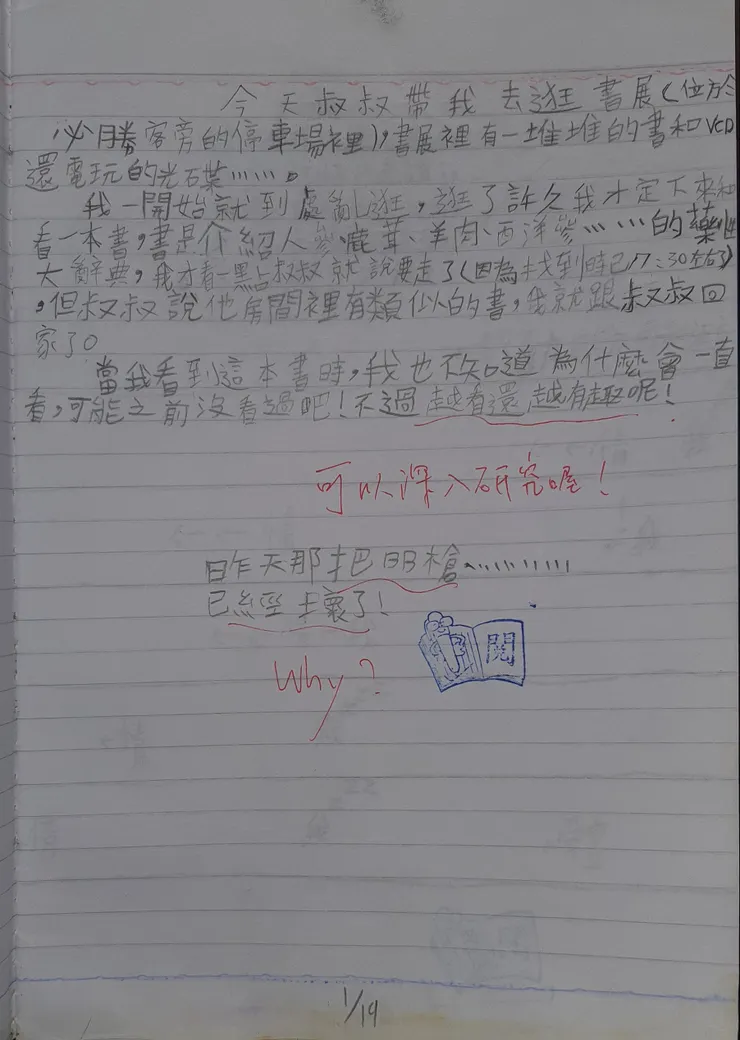 今天叔叔帶我去逛書展(位於
必勝客旁的停車場裡),書展裡有一堆堆的書和VCD
還電玩的光碟……。
我一開始就到處亂逛,逛了許久我才定下來和
看一本書,書是介紹人參、鹿茸、羊肉、西洋參……的藥
大辭典,我才看一點叔叔就說要走了(因為找到時已17:30左右了)
,但叔叔說他房間裡有類似的書,我就跟叔叔回
家了。
當我看到這本書時,我也不知道為什麼會一直
看,可能之前沒看過吧!不過越看還越有趣呢!
可以深入研究喔!
昨天那把BB槍…………
已經壞了!
Why?
閱
1/19